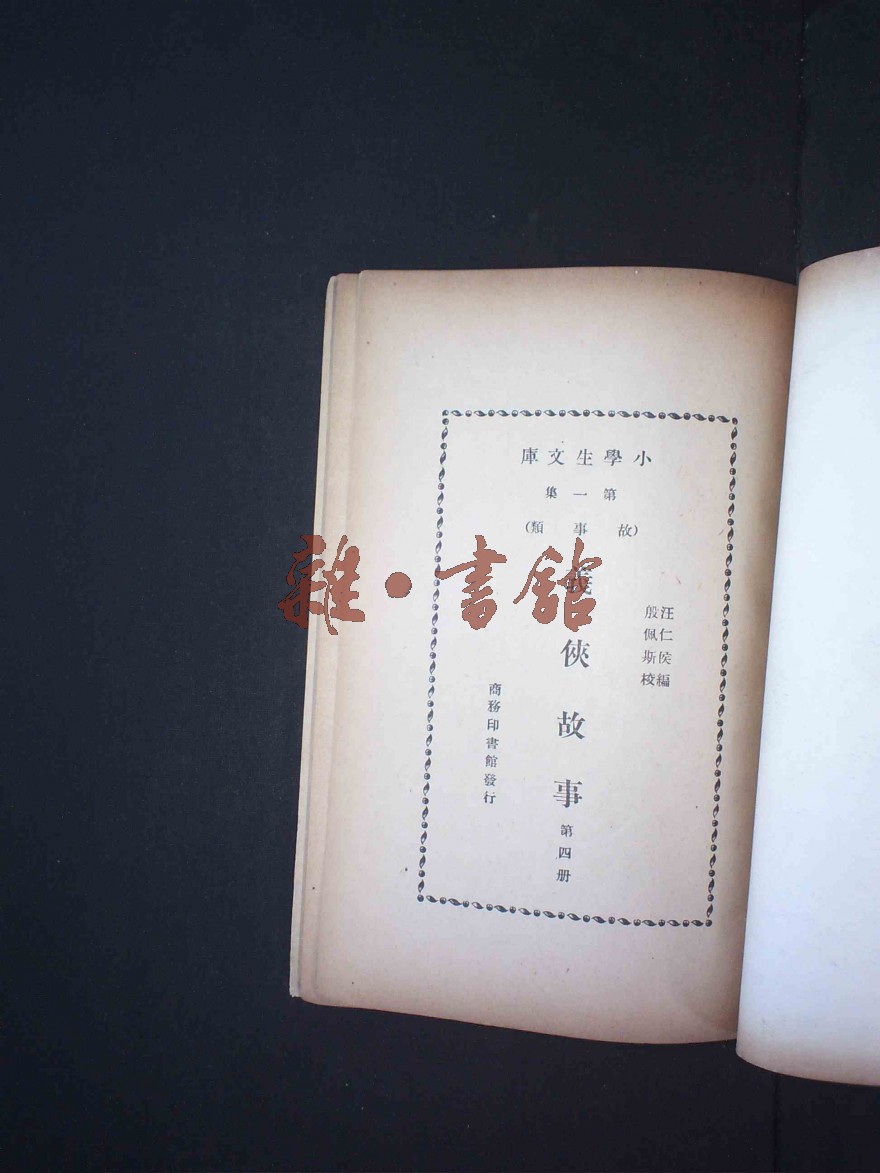 小學生文庫
第一集
(故事類)
汪仁侯編
殷佩斯校
義俠故事 第四册
商務印書館發行
雜·書館